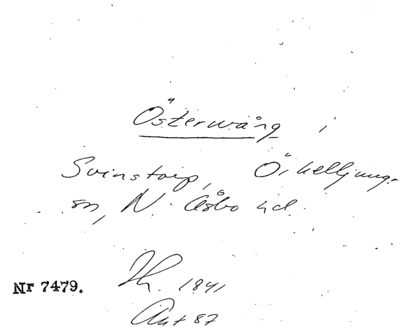 Österwång i
Svinstorp, Örkelljunga
sn, N. Åsbo hd.
Nr 7479.
Th. 1841
Ant 87